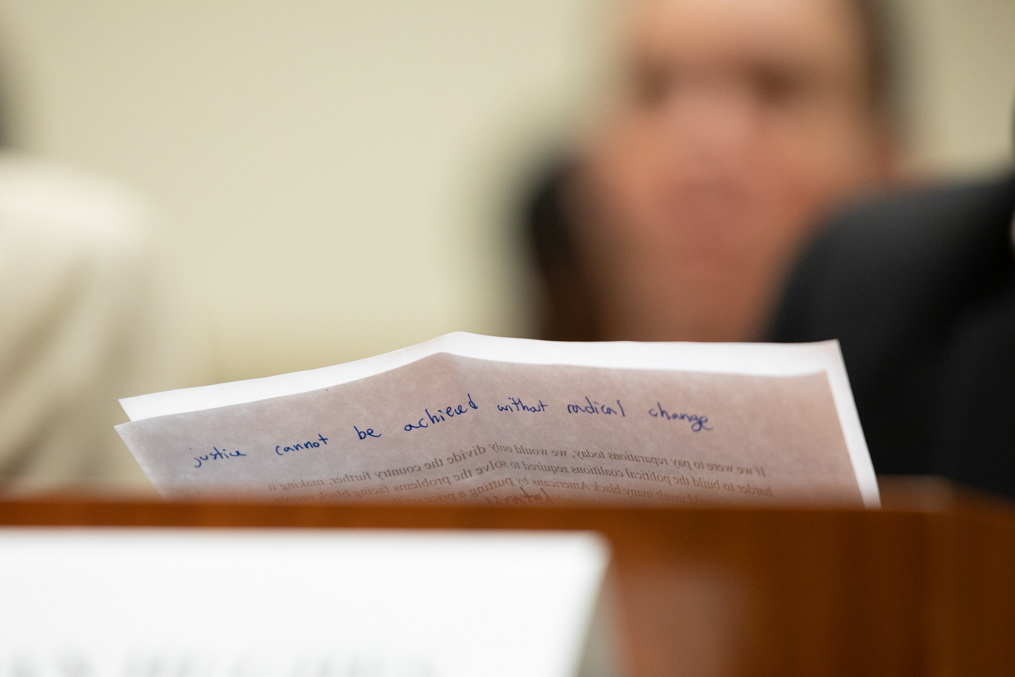 justice cannot be achieved without radical change
If we were to pay reparations today, we would only divide the country further, making it
harder to build the political coalitions required to solve the problems facing black
insult many black Americans by putting a price